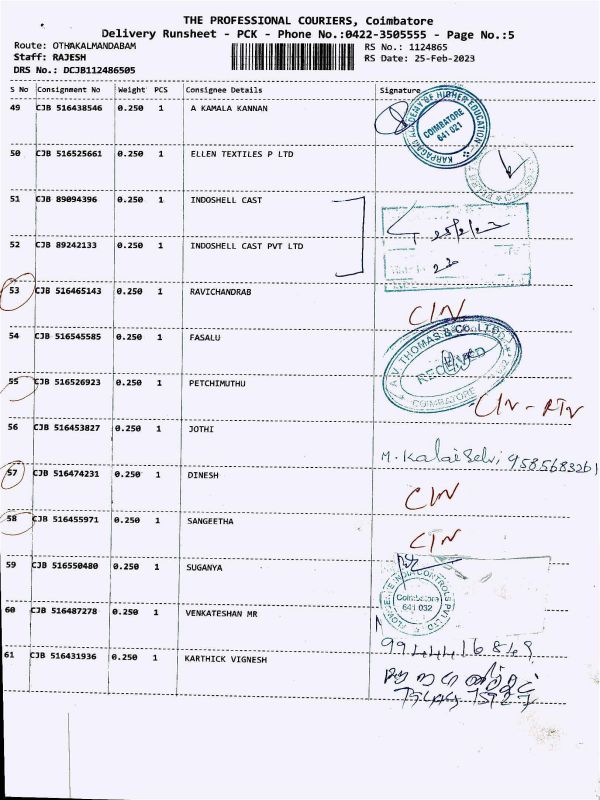 THE PROFESSIONAL COURIERS, Coimbatore
Delivery Runsheet - PCK - Phone No.:0422-3505555 - Page No.:5
Route: OTHAKALMANDABAM
RS No.: 1124865
Staff: RAJESH
RS Date: 25-Feb-2023
DRS No.: DCJB112486505
S No Consignment No Weight PCS Consignee Details Signature
49 CJB 516438546 0.250 1 A KAMALA KANNAN
KARPAGAM ACADEMY OF HIGHER EDUCATION
COIMBATORE
641 021
50 CJB 516525661 0.250 1 ELLEN TEXTILES P LTD
51 CJB 89094396 0.250 1 INDOSHELL CAST
52 CJB 89242133 0.250 1 INDOSHELL CAST PVT LTD
53 CJB 516465143 0.250 1 RAVICHANDRAB
CIN
54 CJB 516545585 0.250 1 FASALU
A.V. THOMAS & CO. LTD.
RECEIVED
COIMBATORE
55 CJB 516526923 0.250 1 PETCHIMUTHU
CIN - RTN
56 CJB 516453827 0.250 1 JOTHI
M. Kalai Selvi, 9585683261
57 CJB 516474231 0.250 1 DINESH
CIN
58 CJB 516455971 0.250 1 SANGEETHA
CIN
59 CJB 516550480 0.250 1 SUGANYA
Coimbatore
641 032
60 CJB 516487278 0.250 1 VENKATESHAN MR
9944416849
61 CJB 516431936 0.250 1 KARTHICK VIGNESH